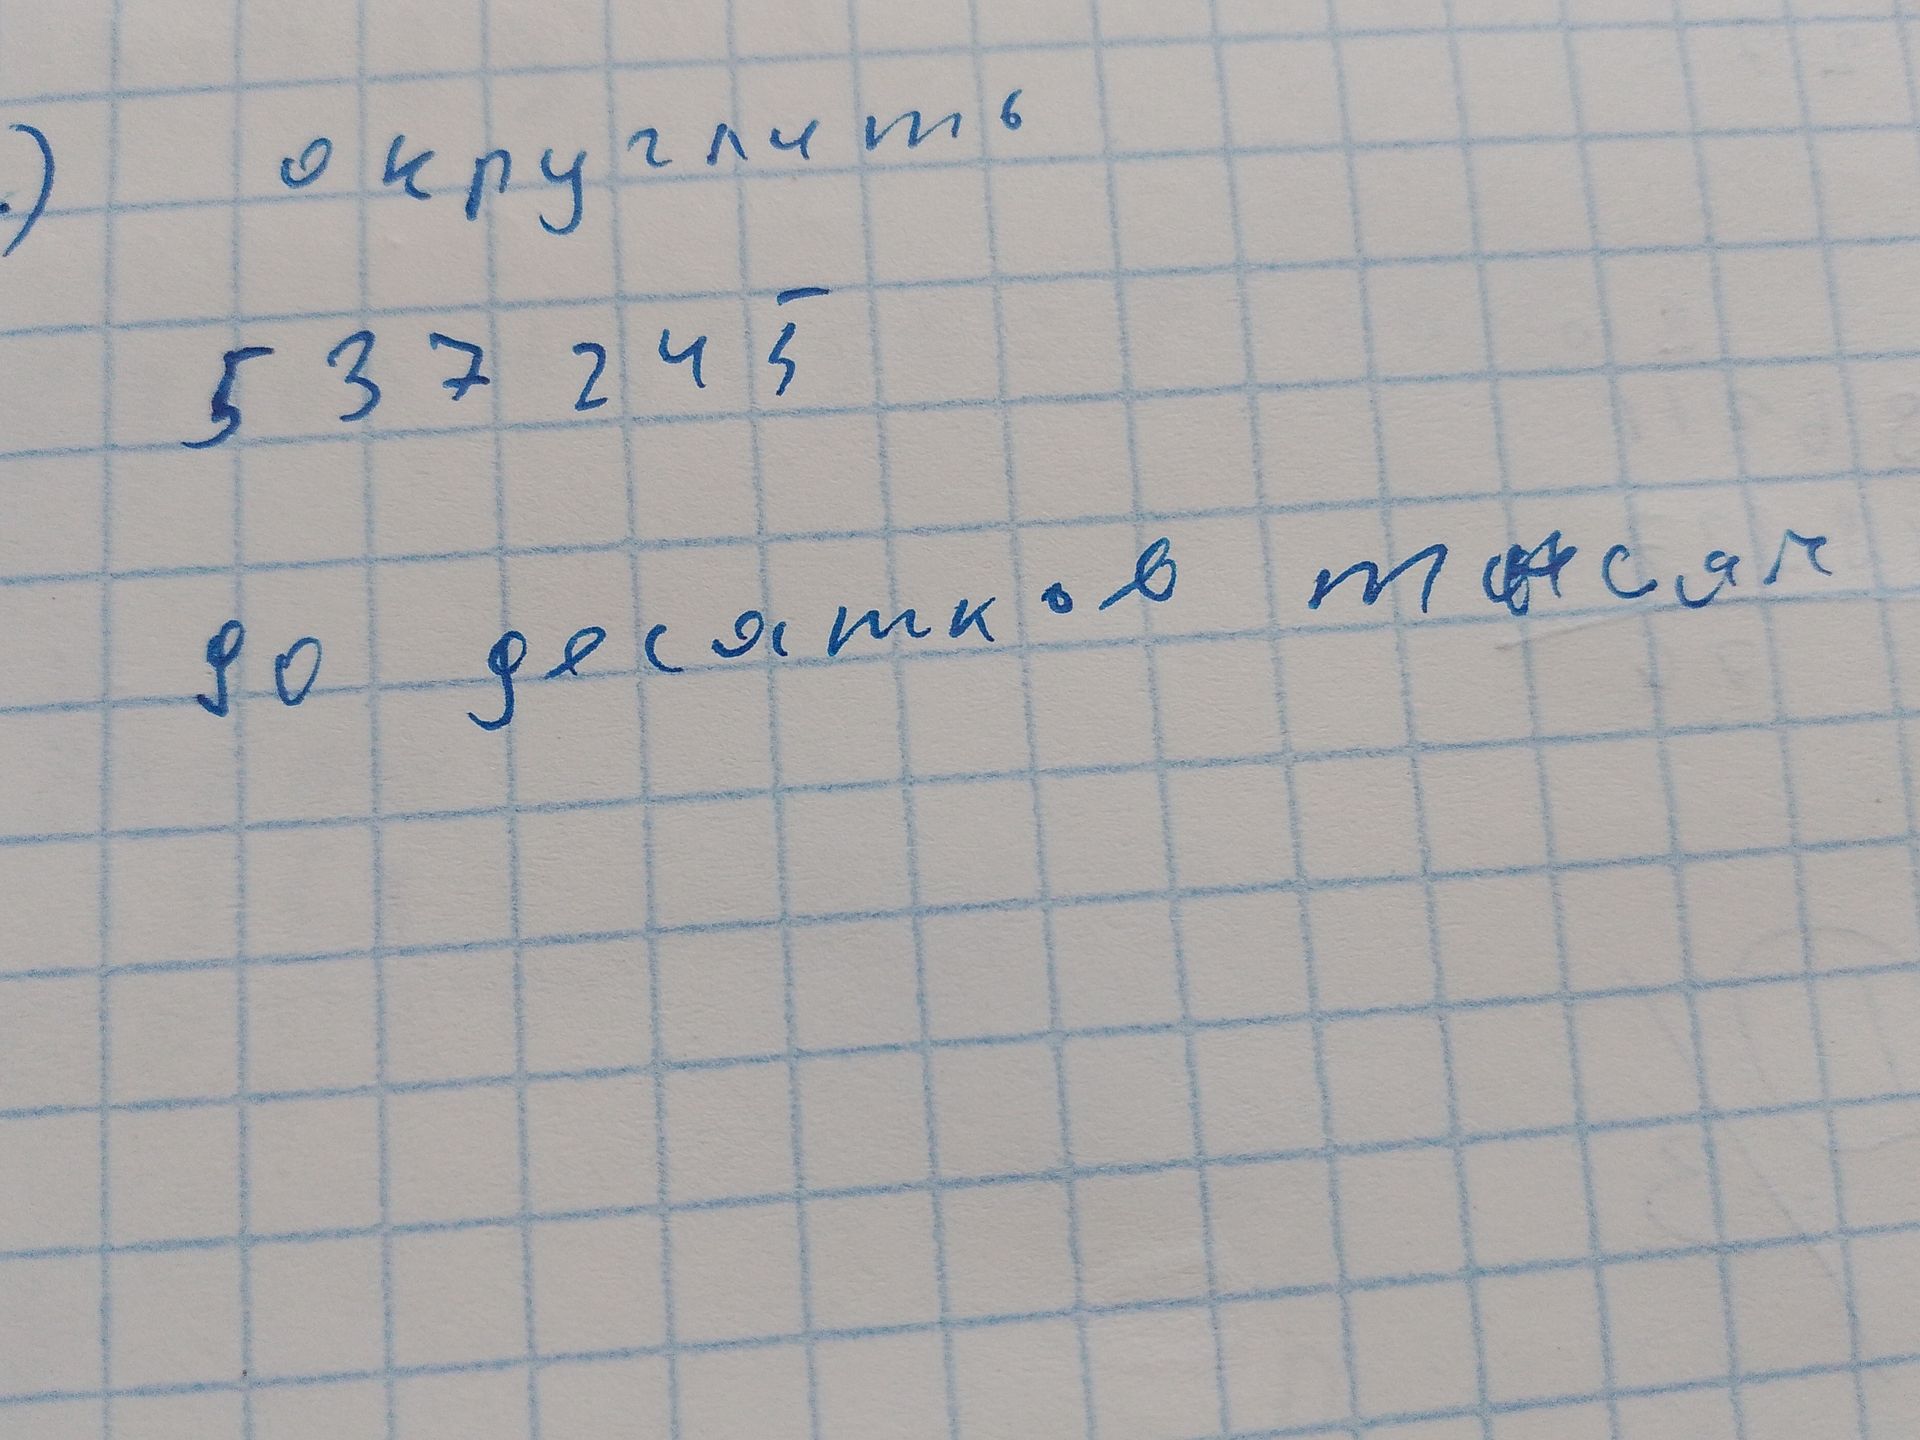 .) округлить
537245
до десятков тысяч